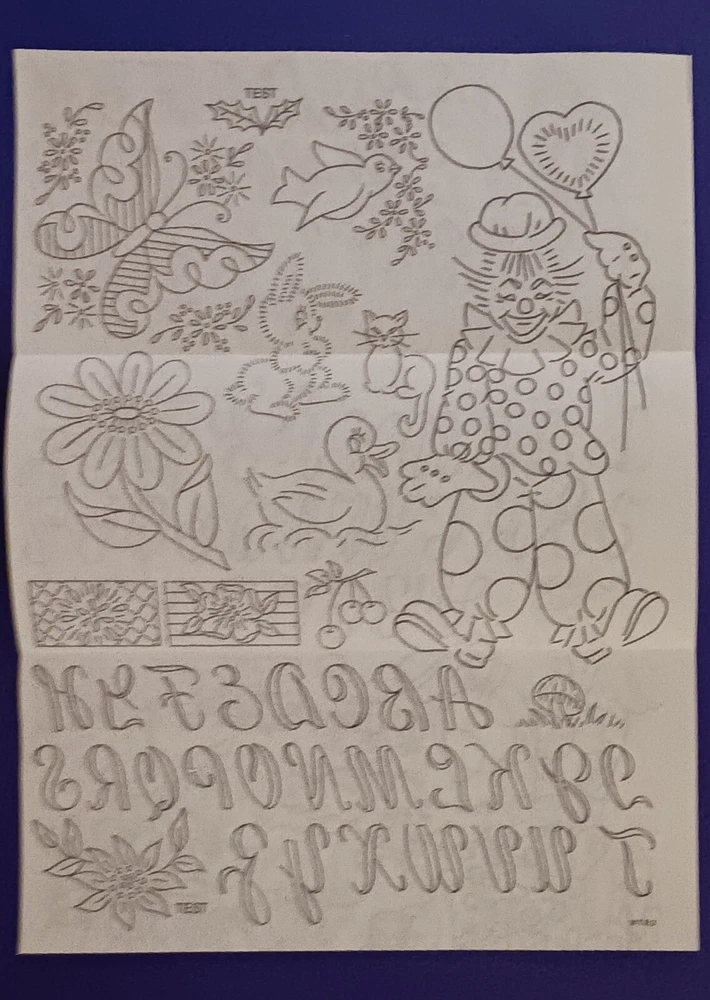 TEST
ABCDEFGH
IJKLMNOPQRS
TUVWXYZ
TEST